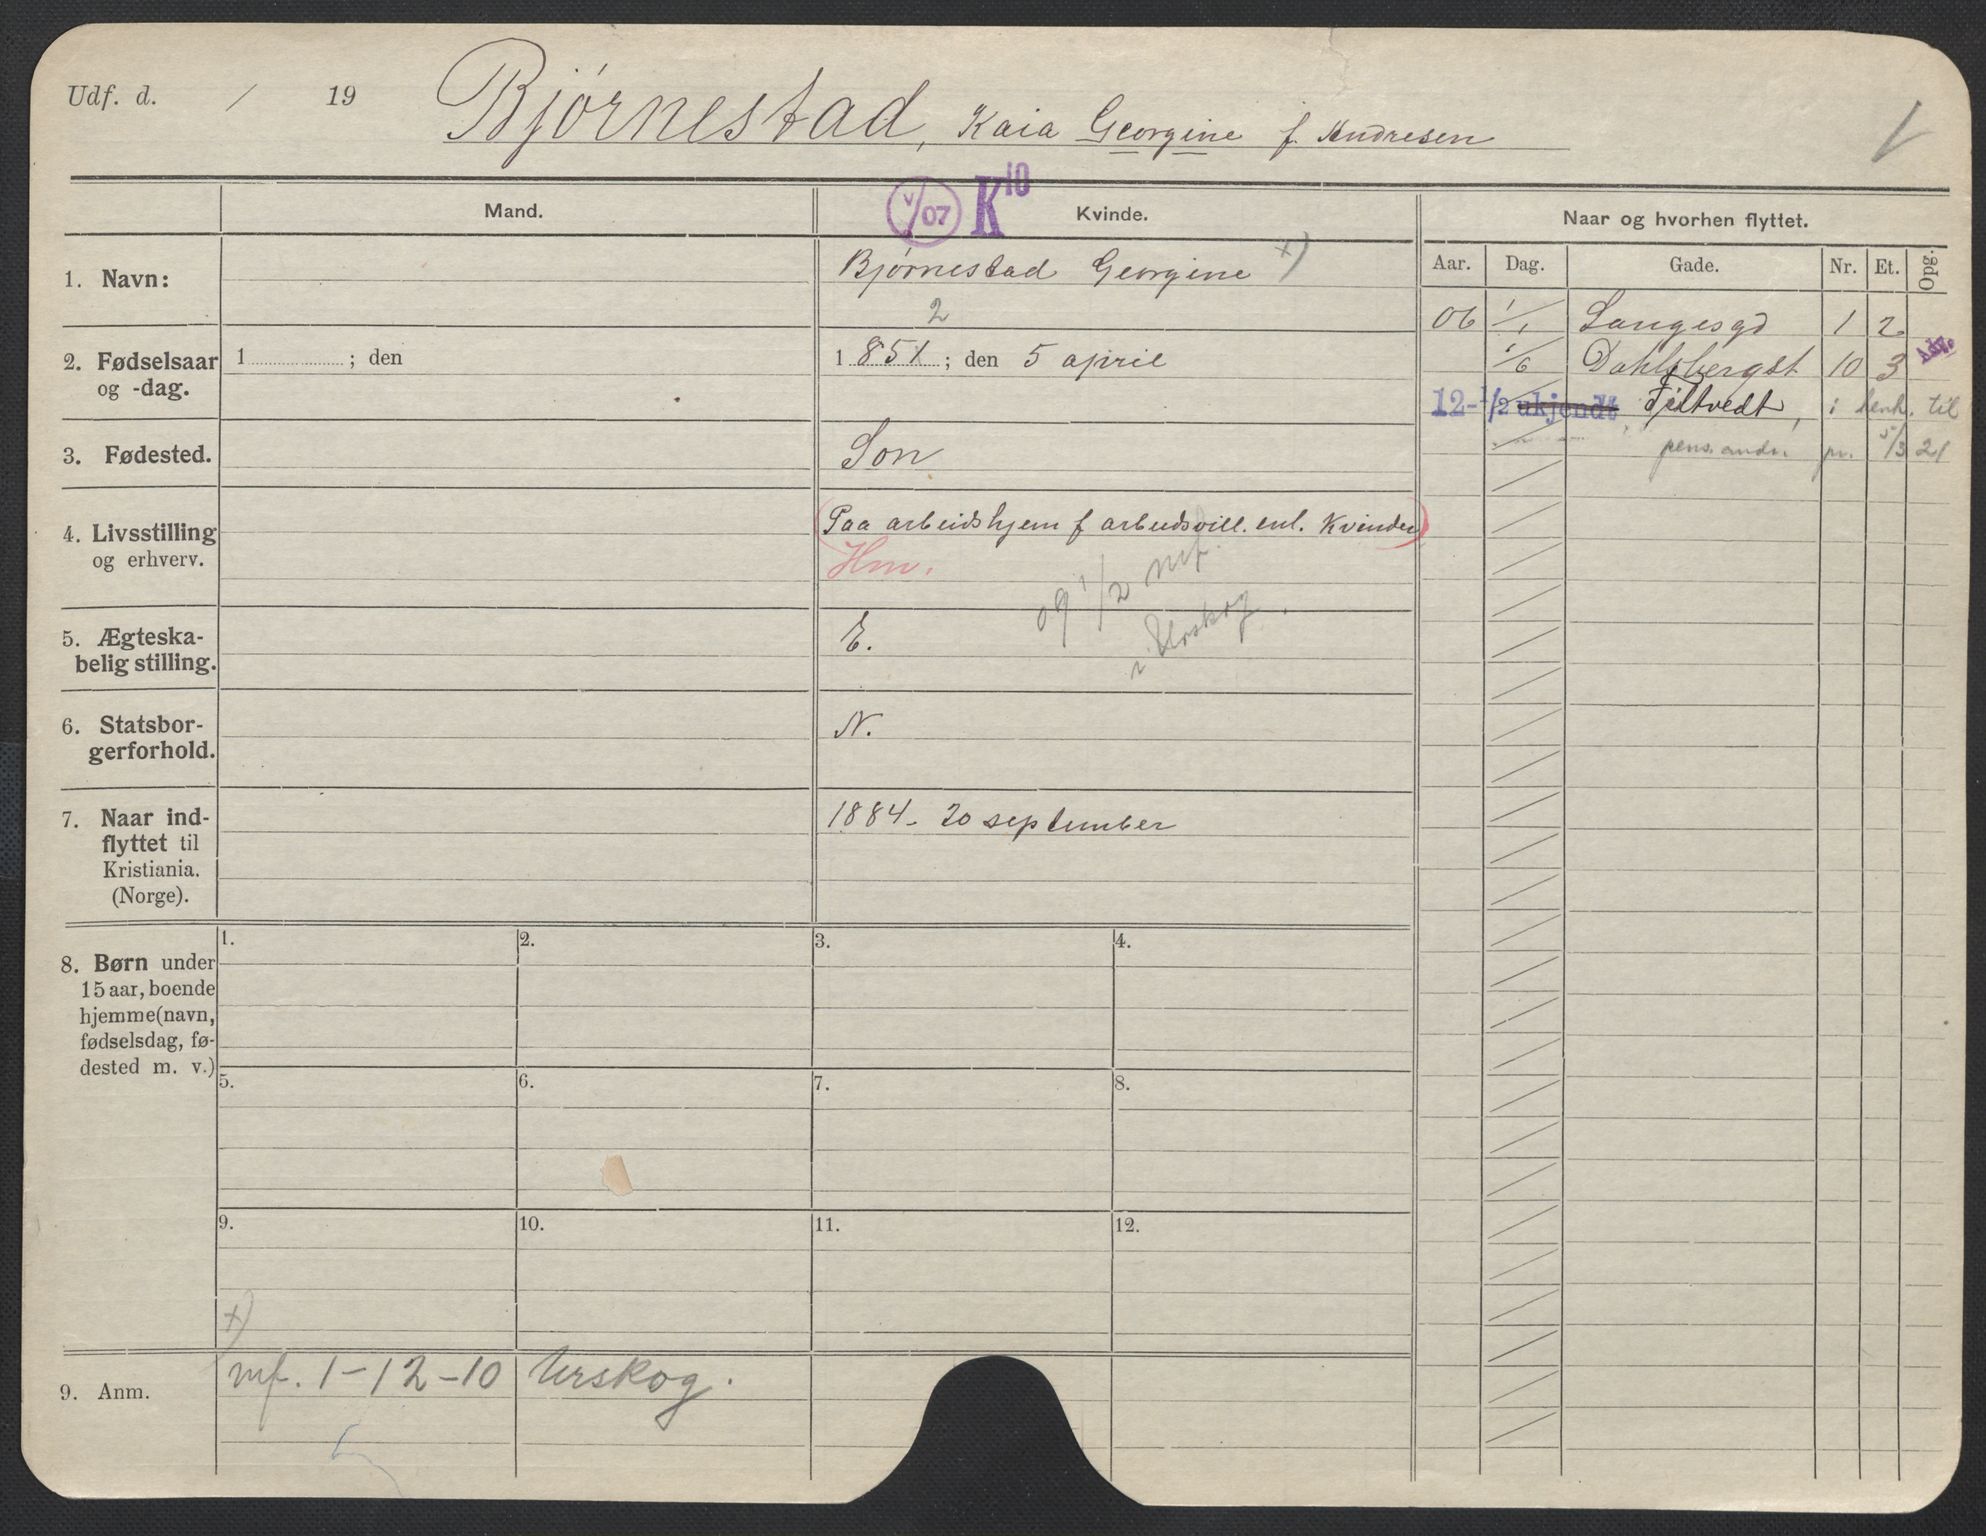 Udf. d. / 19 Bjørnestad, Kaia Georgine f. Andresen
V/07 K10
Mand. Kvinde. Naar og hvorhen flyttet.
Aar. Dag. Gade. Nr. Et. Opg.
1. Navn: Bjørnestad Georgine x)
2
2. Fødselsaar 1 ; den 1 851 ; den 5 april
og -dag.
3. Fødested. Son
4. Livsstilling (Paa arbeidshjem f arbeidsvill. enl. Kvinder)
og erhverv. Hm.
09 1/2 mf.
i Urskog.
5. Ægteska-
belig stilling. E.
6. Statsbor-
gerforhold. N.
7. Naar ind-
flyttet til
Kristiania.
(Norge).
1884 - 20 september
06 1/1 Langesgd 1 2
1/6 Dahlsbergst 10 3
12- 1/2 ukjendt, Filtvedt, i henh. til
pens. andr. pr. 5/3 21
8. Børn under
15 aar, boende
hjemme (navn,
fødselsdag, fø-
dested m. v.)
1. 2. 3. 4.
5. 6. 7. 8.
9. 10. 11. 12.
x)
9. Anm. mf. 1-12-10 Urskog.